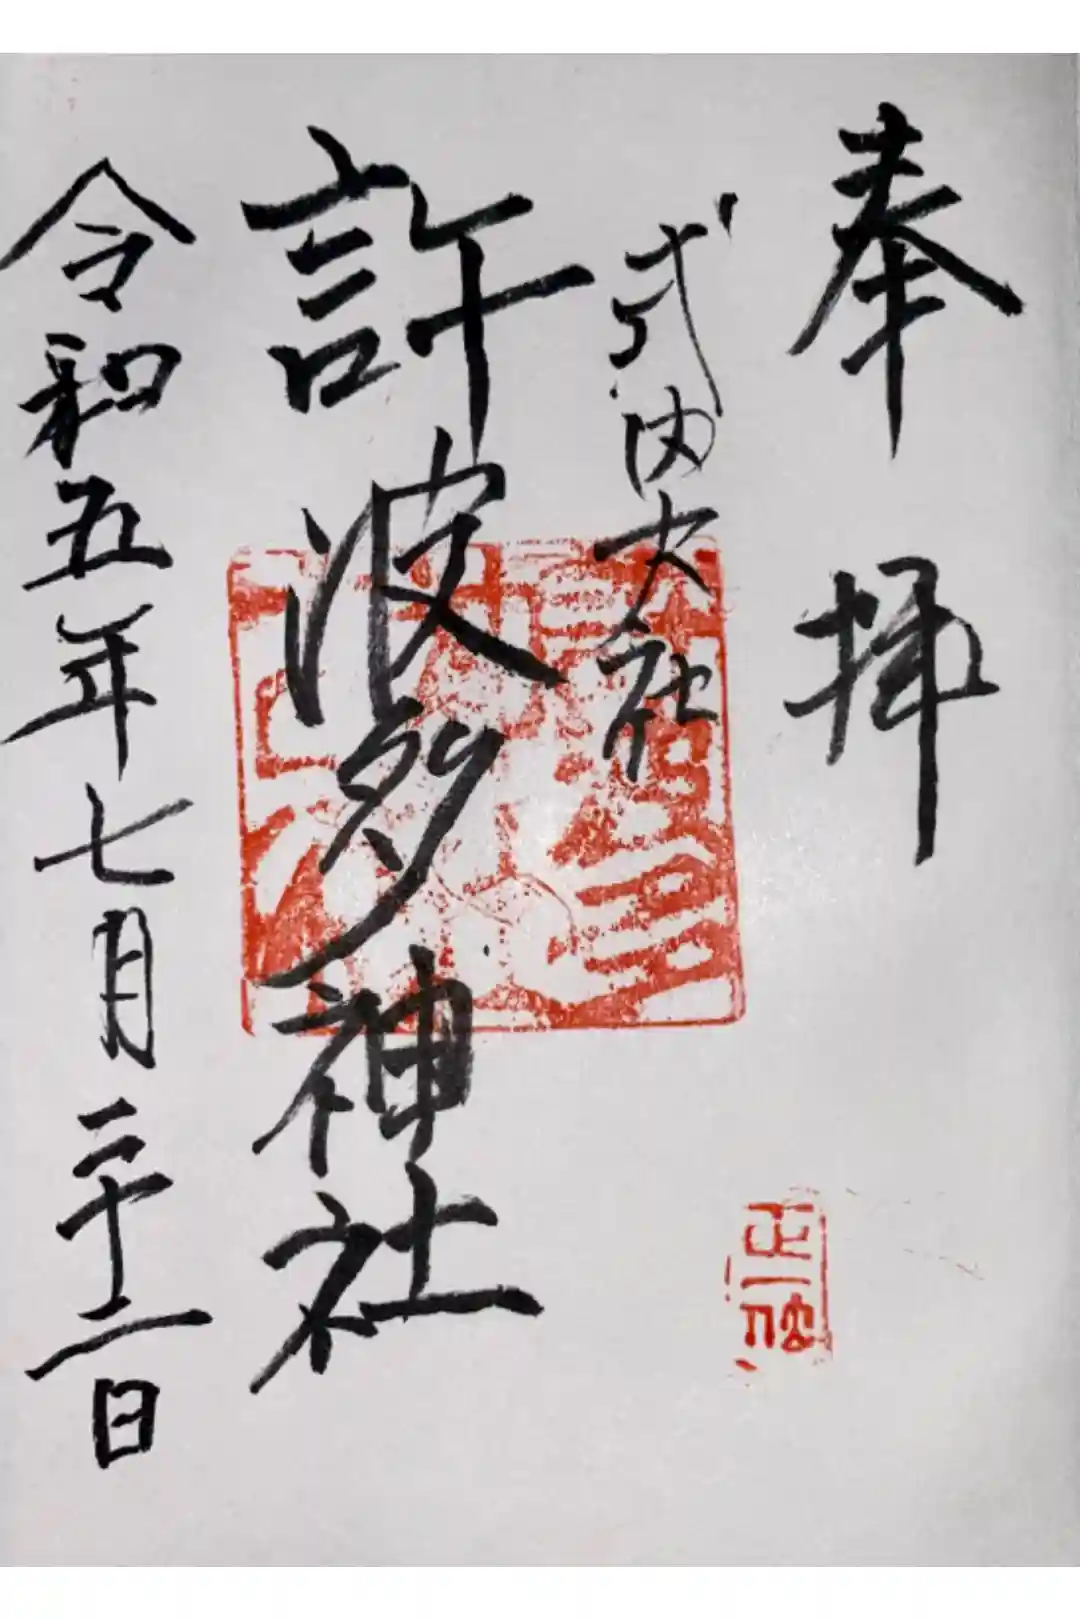 奉拝
式内大社
許波多神社
令和五年七月二十二日
正一位